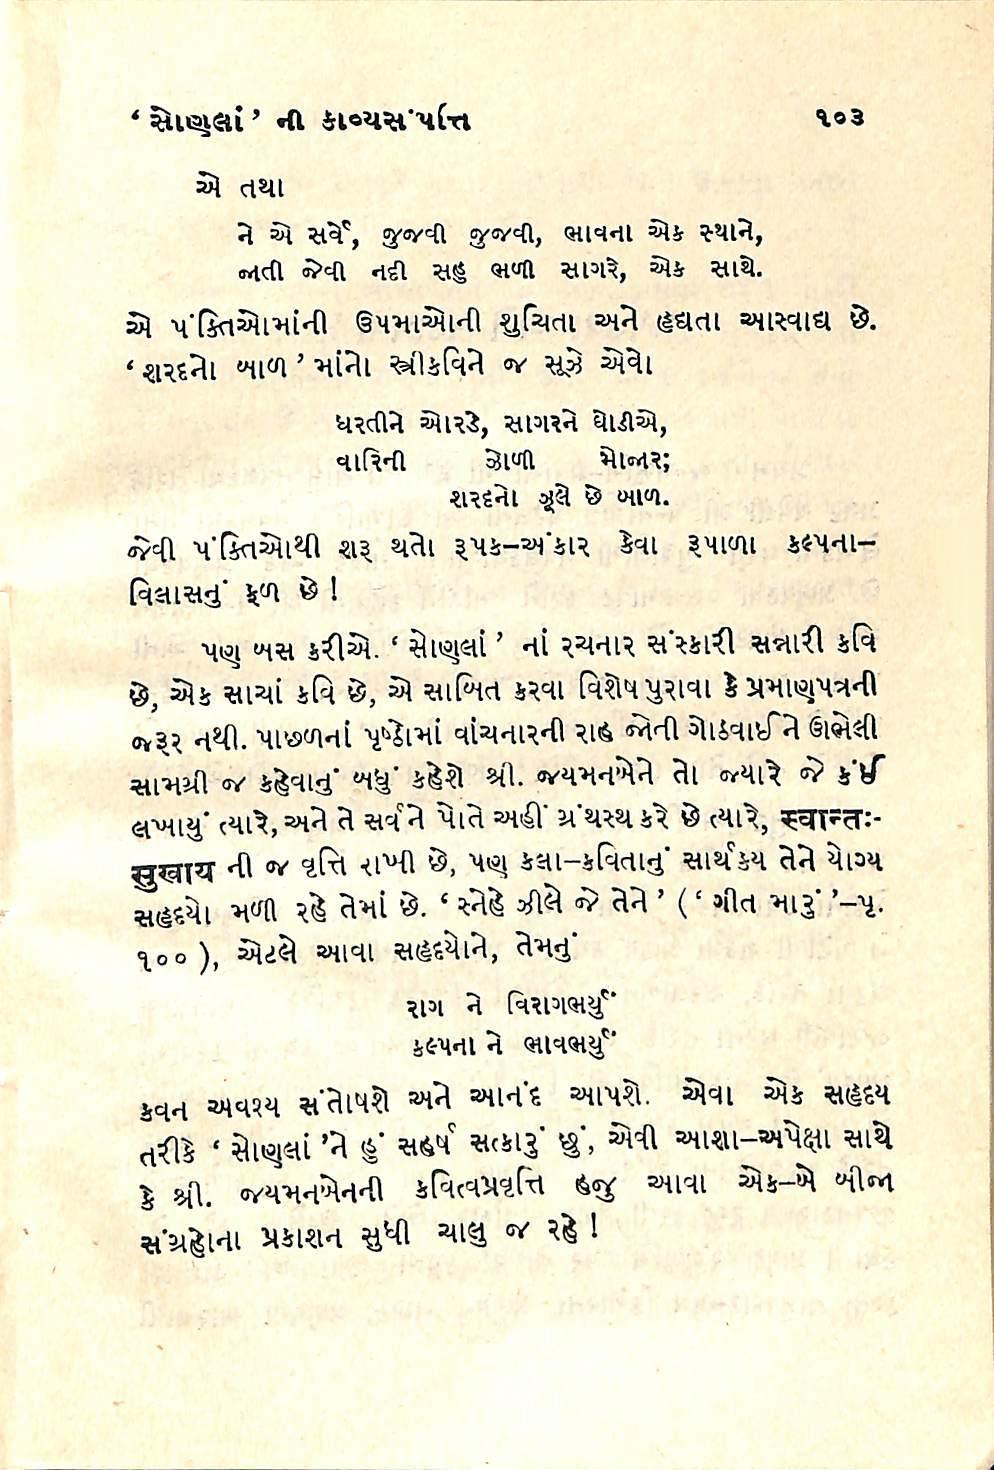 ‘સોણલાં’ ની કાવ્યસંપત્તિ ૧૦૩
એ તથા
ને એ સર્વે, જુજવી જુજવી, ભાવના એક સ્થાને,
જાતી જેવી નદી સહુ ભળી સાગરે, એક સાથે.
એ પંક્તિઓમાંની ઉપમાઓની શુચિતા અને હૃદ્યતા આસ્વાદ્ય છે.
‘શરદનો બાળ’ માંનો સ્ત્રીકવિને જ સૂઝે એવો
ધરતીને ઓરડે, સાગરને ઘોડીએ,
વારિની ઝોળી મોજાર;
શરદનો ઝૂલે છે બાળ.
જેવી પંક્તિઓથી શરૂ થતો રૂપક–અંકાર કેવા રૂપાળા કલ્પના–
વિલાસનું ફળ છે!
પણ બસ કરીએ. ‘સોણલાં’ નાં રચનાર સંસ્કારી સન્નારી કવિ
છે, એક સાચાં કવિ છે, એ સાબિત કરવા વિશેષ પુરાવા કે પ્રમાણપત્રની
જરૂર નથી. પાછળનાં પૃષ્ઠોમાં વાંચનારની રાહ જોતી ગોઠવાઈને ઊભેલી
સામગ્રી જ કહેવાનું બધું કહેશે શ્રી. જયમનબેને તો જ્યારે જે કંઈ
લખાયું ત્યારે, અને તે સર્વને પોતે અહીં ગ્રંથસ્થ કરે છે ત્યારે, स्वान्तः-
सुखाय ની જ વૃત્તિ રાખી છે, પણ કલા–કવિતાનું સાર્થક્ય તેને યોગ્ય
સહૃદયો મળી રહે તેમાં છે. ‘સ્નેહે ઝીલે જે તેને’ (‘ગીત મારું’–પૃ.
૧૦૦), એટલે આવા સહૃદયોને, તેમનું
રાગ ને વિરાગભર્યું
કલ્પના ને ભાવભર્યું
કવન અવશ્ય સંતોષશે અને આનંદ આપશે. એવા એક સહૃદય
તરીકે ‘સોણલાં’ને હું સહર્ષ સત્કારું છું, એવી આશા–અપેક્ષા સાથે
કે શ્રી. જયમનબેનની કવિત્વપ્રવૃત્તિ હજુ આવા એક–બે બીજા
સંગ્રહોના પ્રકાશન સુધી ચાલુ જ રહે!